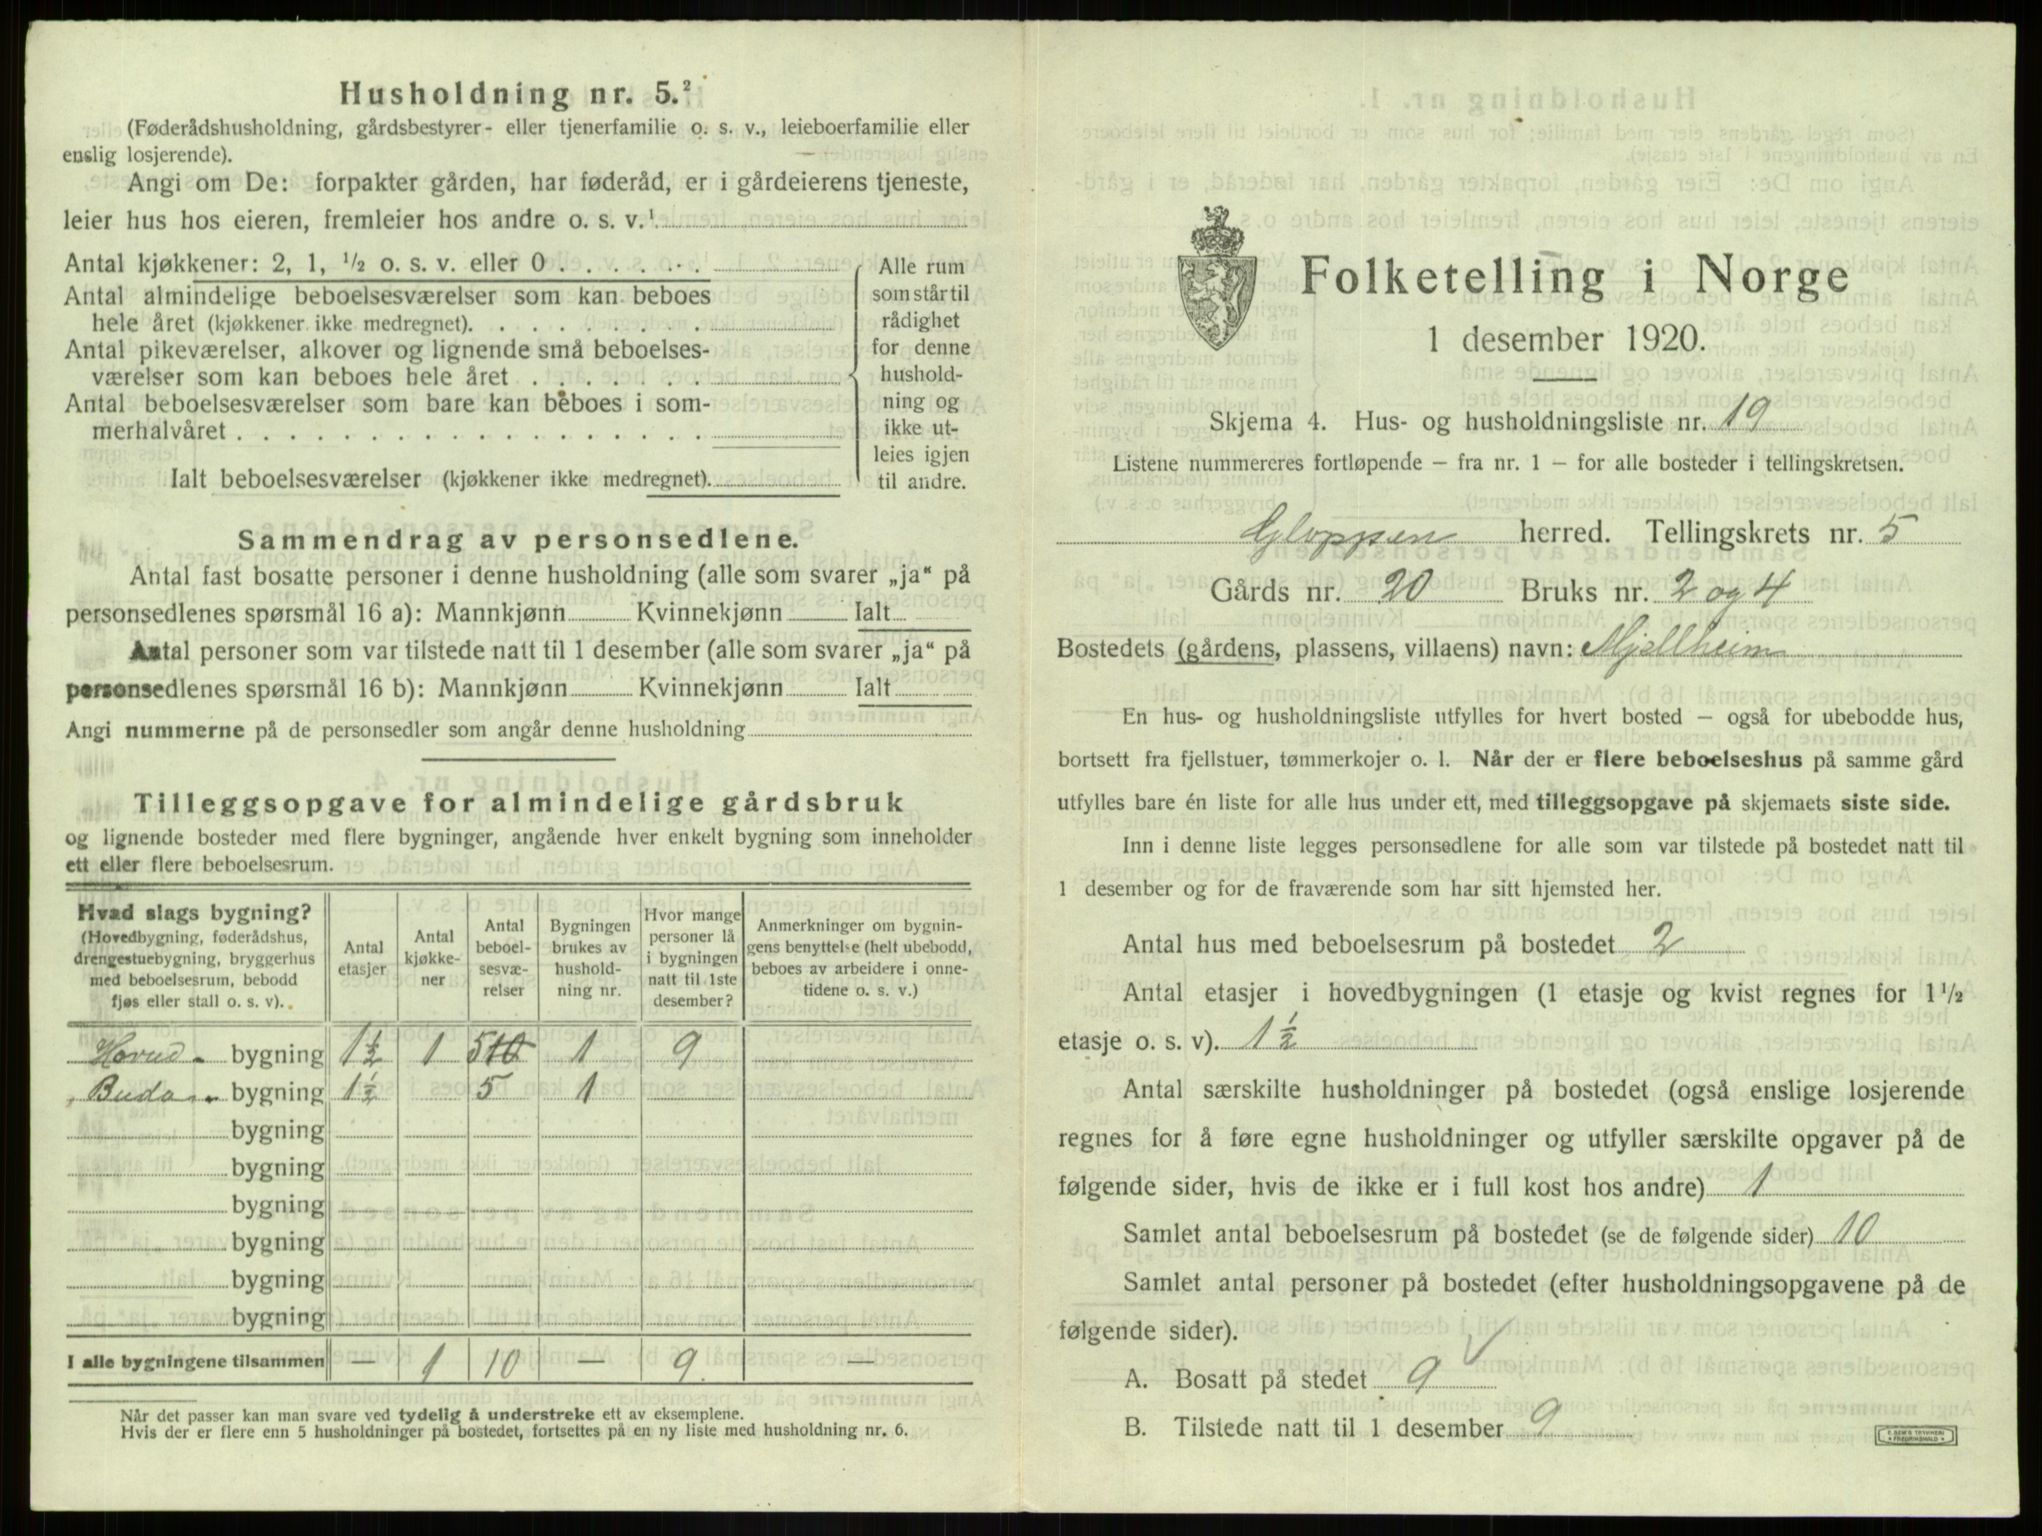 Husholdning nr. 5.²
(Føderådshusholdning, gårdsbestyrer- eller tjenerfamilie o. s. v., leieboerfamilie eller
enslig losjerende).
Angi om De: forpakter gården, har føderåd, er i gårdeierens tjeneste,
leier hus hos eieren, fremleier hos andre o. s. v.¹
Antal kjøkkener: 2, 1, ½ o. s. v. eller 0 . . . . . .
Antal almindelige beboelsesværelser som kan beboes
hele året (kjøkkener ikke medregnet). . . . . . . . .
Antal pikeværelser, alkover og lignende små beboelses-
værelser som kan beboes hele året . . . . . . .
Antal beboelsesværelser som bare kan beboes i som-
merhalvåret . . . . . . . . . . . . . . . . . .
Ialt beboelsesværelser (kjøkkener ikke medregnet).
Alle rum
som står til
rådighet
for denne
hushold-
ning og
ikke ut-
leies igjen
til andre.
Sammendrag av personsedlene.
Antal fast bosatte personer i denne husholdning (alle som svarer „ja“ på
personsedlenes spørsmål 16 a): Mannkjønn Kvinnekjønn Ialt
Antal personer som var tilstede natt til 1 desember (alle som svarer „ja“ på
personsedlenes spørsmål 16 b): Mannkjønn Kvinnekjønn Ialt
Angi nummerne på de personsedler som angår denne husholdning
Tilleggsopgave for almindelige gårdsbruk
og lignende bosteder med flere bygninger, angående hver enkelt bygning som inneholder
ett eller flere beboelsesrum.
Hvad slags bygning?
(Hovedbygning, føderådshus,
drengestuebygning, bryggerhus
med beboelsesrum, bebodd
fjøs eller stall o. s. v).
Antal
etasjer
Antal
kjøkke-
ner
Antal
beboel-
sesvæ-
relser
Bygningen
brukes av
hushold-
ning nr.
Hvor mange
personer lå
i bygningen
natt til 1ste
desember?
Anmerkninger om bygnin-
gens benyttelse (helt ubebodd,
beboes av arbeidere i onne-
tidene o. s. v.)
Hovud- bygning 1½ 1 5 10 1 9
Buda- bygning 1½ 5 1
bygning
bygning
bygning
bygning
bygning
bygning
I alle bygningene tilsammen — 1 10 — 9 —
Når det passer kan man svare ved tydelig å understreke ett av eksemplene.
Hvis der er flere enn 5 husholdninger på bostedet, fortsettes på en ny liste med husholdning nr. 6.
Folketelling i Norge
1 desember 1920.
Skjema 4. Hus- og husholdningsliste nr. 19
Listene nummereres fortløpende – fra nr. 1 – for alle bosteder i tellingskretsen.
Gloppen herred. Tellingskrets nr. 5
Gårds nr. 20 Bruks nr. 2 og 4
Bostedets (gårdens, plassens, villaens) navn: Mjellheim
En hus- og husholdningsliste utfylles for hvert bosted – også for ubebodde hus,
bortsett fra fjellstuer, tømmerkojer o. l. Når der er flere beboelseshus på samme gård
utfylles bare én liste for alle hus under ett, med tilleggsopgave på skjemaets siste side.
Inn i denne liste legges personsedlene for alle som var tilstede på bostedet natt til
1 desember og for de fraværende som har sitt hjemsted her.
Antal hus med beboelsesrum på bostedet 2
Antal etasjer i hovedbygningen (1 etasje og kvist regnes for 1½
etasje o. s. v). 1½
Antal særskilte husholdninger på bostedet (også enslige losjerende
regnes for å føre egne husholdninger og utfyller særskilte opgaver på de
følgende sider, hvis de ikke er i full kost hos andre) 1
Samlet antal beboelsesrum på bostedet (se de følgende sider) 10
Samlet antal personer på bostedet (efter husholdningsopgavene på de
følgende sider).
A. Bosatt på stedet 9
B. Tilstede natt til 1 desember 9